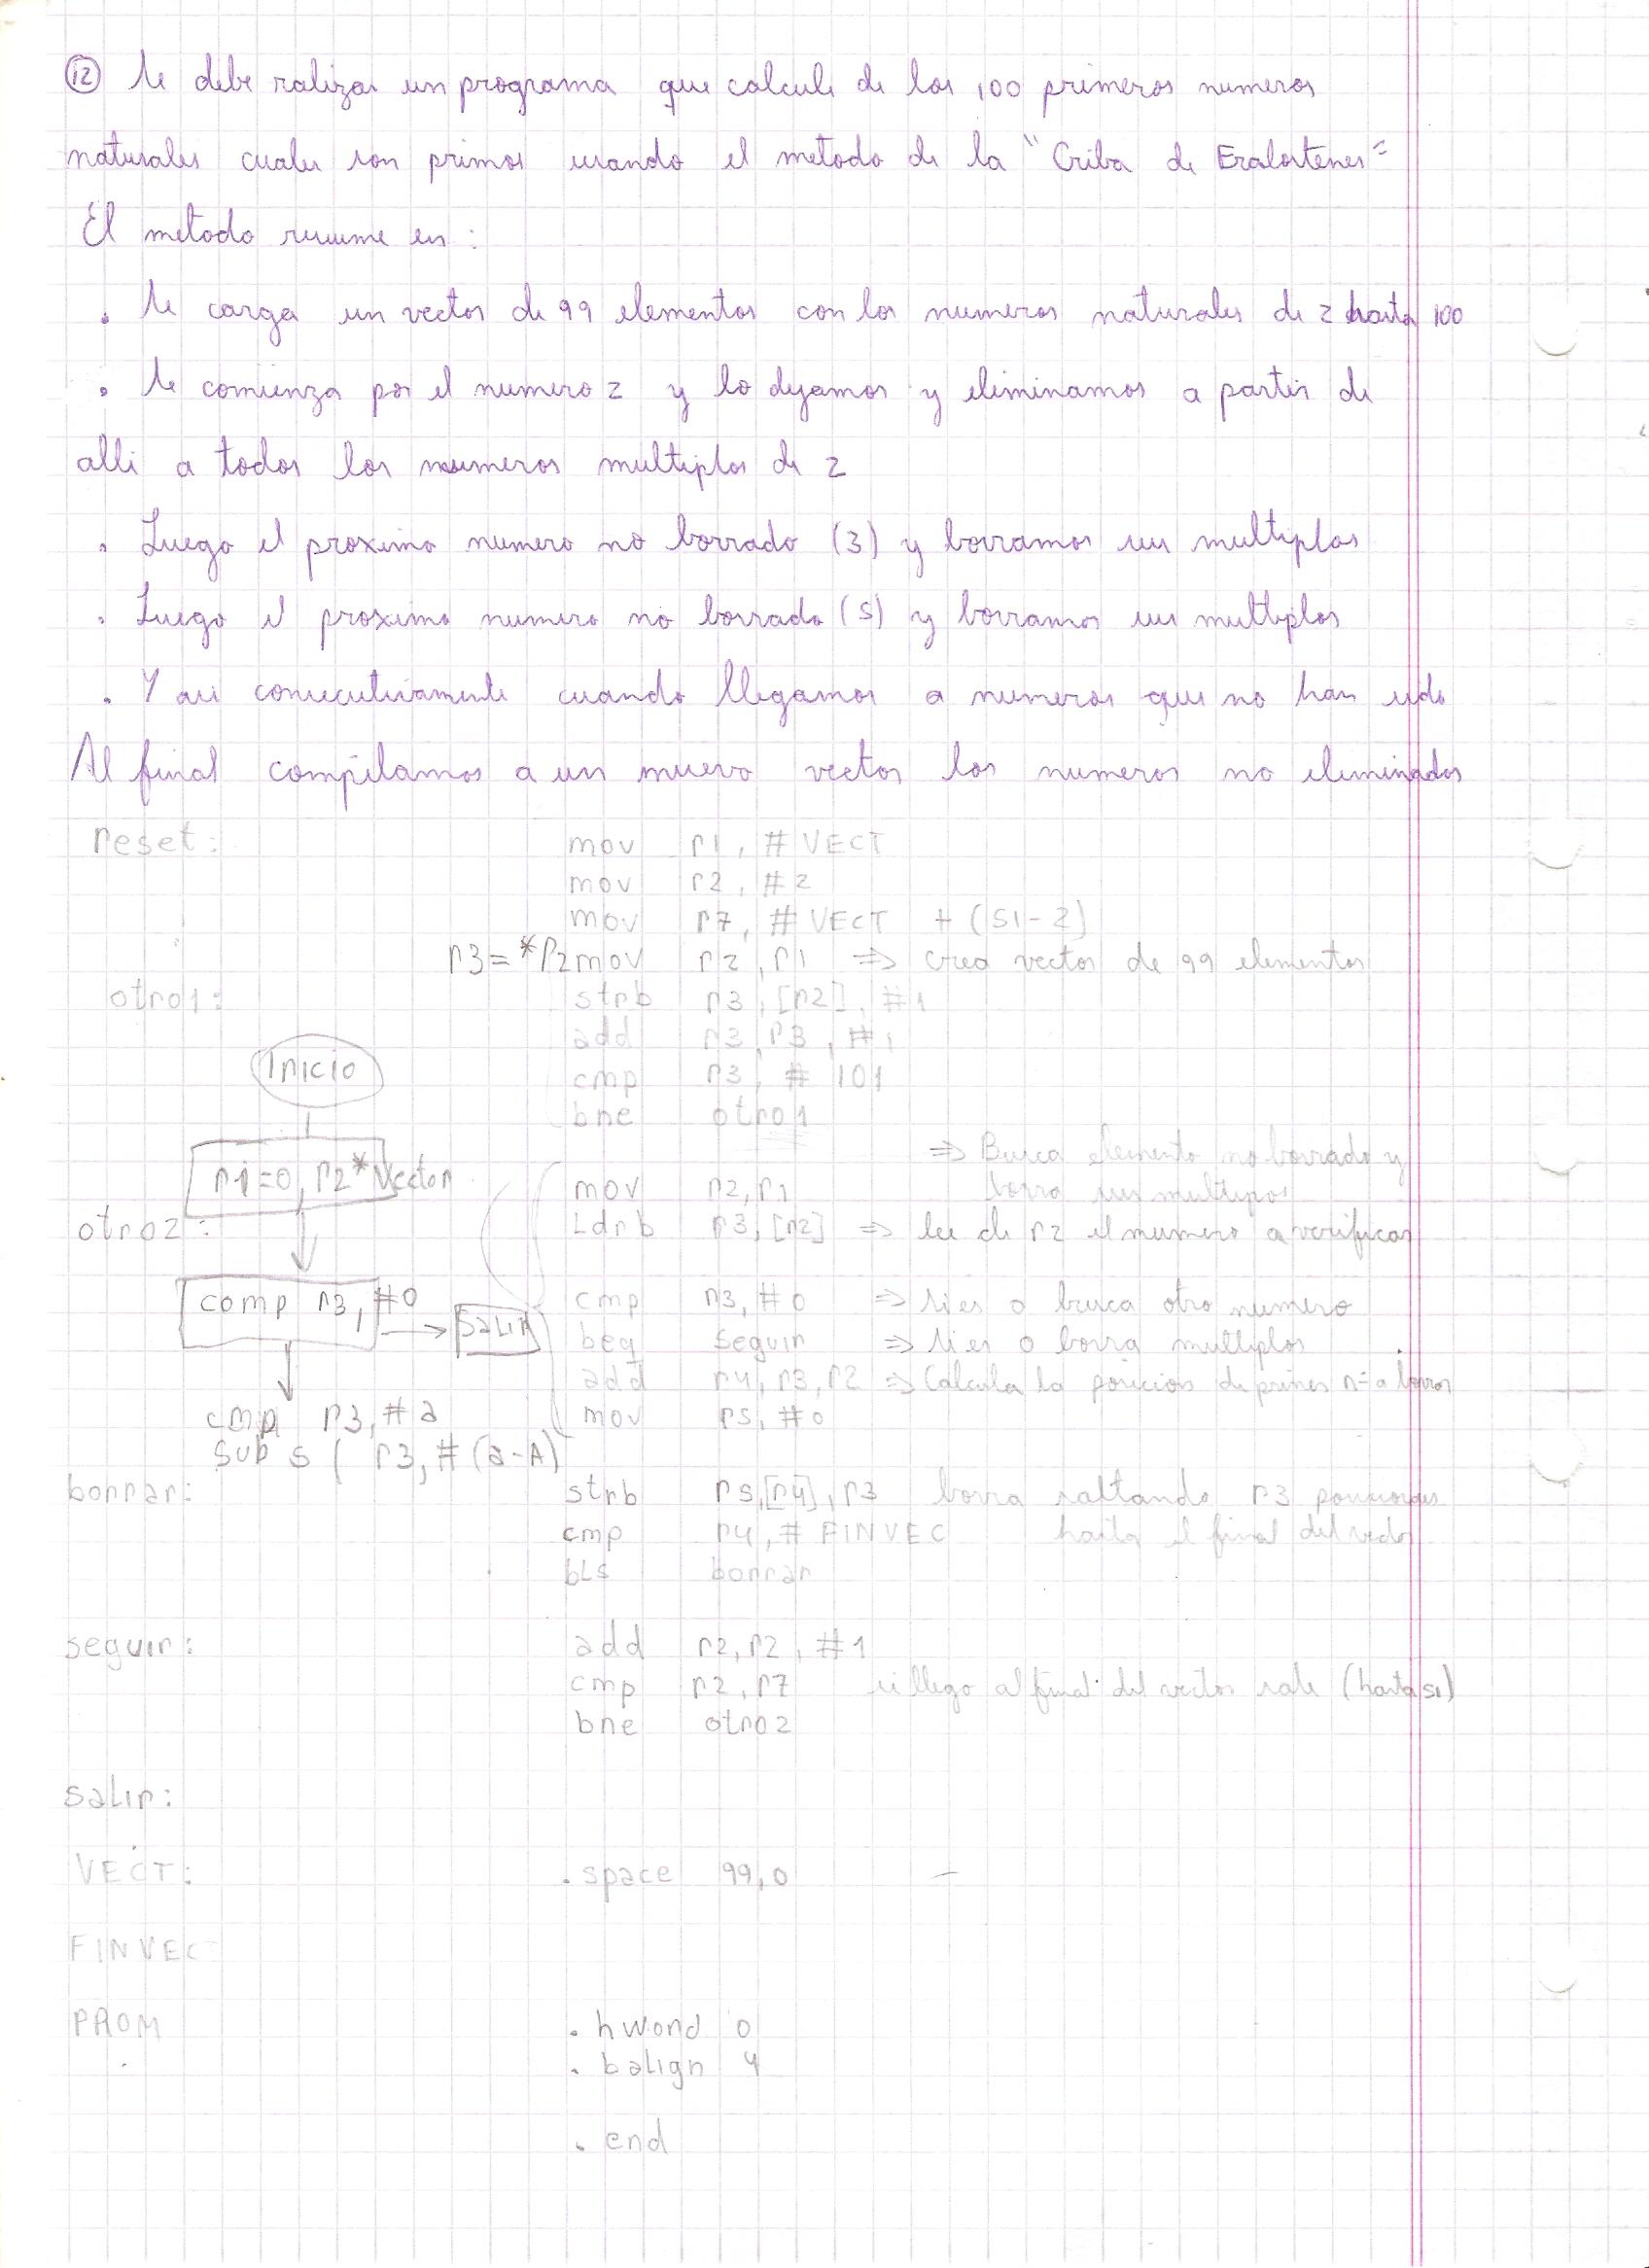 12 Se debe ralizar un programa que calcule de los 100 primeros numeros
naturales cuales son primos usando el metodo de la "Criba de Eratostenes"
El metodo resume en:
. Se carga un vector de 99 elementos con los numeros naturales de 2 hasta 100
. Se comienza por el numero 2 y lo dejamos y eliminamos a partir de
alli a todos los numeros multiplos de 2
. Luego el proximo numero no borrado (3) y borramos sus multiplos
. Luego el proximo numero no borrado (5) y borramos sus multiplos
. Y asi consecutivamente cuando llegamos a numeros que no han sido
Al final compilamos a un nuevo vector los numeros no eliminados
reset: mov r1, #VECT
mov r2, #2
mov r7, #VECT + (51-2)
r3=*r2 mov r2, r1 => crea vector de 99 elementos
otro1: strb r3, [r2], #1
add r3, r3, #1
Inicio
cmp r3, #101
bne otro1
=> Busca elemento no borrado y
borra sus multipos
r1=0, r2*Vector
mov r2, r1
otro2: Ldrb r3, [r2] => lee de r2 el numero a verificar
comp r3, #0
Salir
cmp r3, #0 => si es 0 busca otro numero
beq seguir => si es 0 borra multiplos
add r4, r3, r2 => Calcula la posicion de primer nº a borrar
cmp r3, #a
mov r5, #0
subs ( r3, #(a-A)
borrar: strb r5, [r4], r3 borra saltando r3 posiciones
cmp r4, #FINVEC hasta el final del vector
bLs borrar
seguir: add r2, r2, #1
cmp r2, r7 si llego al final del vector sale (hasta 51)
bne otro2
salir:
VECT: .space 99,0 -
FINVEC
PROM .hword 0
.balign 4
.end